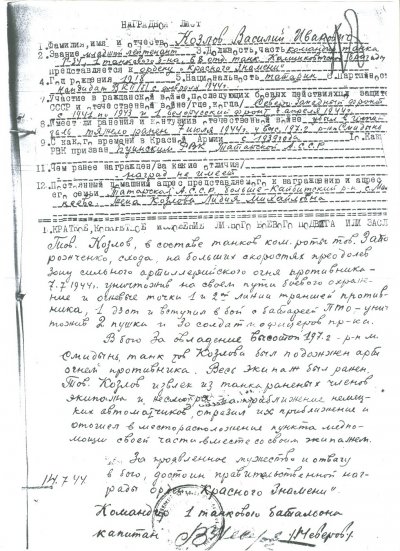 НАГРАДНОЙ ЛИСТ
1. Фамилия, имя и отчество Козлов Василий Иванович
2. Звание младший лейтенант 3. Должность, часть командир танка
1 танкового б-на
представляется к ордену „Красного Знамени"
4. Год рождения 5. Национальность татарин 6. Партийность
кандидат ВКП(б) с февраля 1944г.
7. Участие в гражданской войне, последующих боевых действиях по защите
СССР и отечественной войне /где, когда/ Северо-Западный фронт
с 1941 по 1943 и 1 Белорусский фронт с апреля 1944г.
8. Имеет ли ранения и контузии в отечественной войне
тяжело ранен 7 июля 1944г. у выс. 197.2 р-н Смидынь
9. С какого времени в Красной Армии с 1939 года 10. Каким
РВК призван РВК Татарской АССР
11. Чем ранее награжден /за какие отличия/
наград не имеет
12. Постоянный домашний адрес представляемого к награждению и адрес
его семьи Татарская АССР, Больше-Кайбитский р-н с.
жена Козлова Лидия Михайловна
1. КРАТКОЕ, КОНКРЕТНОЕ ИЗЛОЖЕНИЕ ЛИЧНОГО БОЕВОГО ПОДВИГА ИЛИ ЗАСЛ
Тов. Козлов, в составе танков ком. роты тов. Запо
рожченко, с хода, на больших скоростях преодолев
зону сильного артиллерийского огня противника-
7.7.1944г. уничтожив на своем пути боевого охране-
ние и огневые точки 1 и 2ой линии траншей против-
ника, 1 дзот и вступил в бой с батареей ПТО – уни-
тожив 2 пушки и до солдат и офицеров пр-ка.
В бою за овладение высотой 197.2 р-н м.
Смидынь, танк тов Козлова был подожжен арт
огнем противника. Весь экипаж был ранен
Тов. Козлов извлек из танка раненых членов
экипажа и, несмотря на приближение немец-
ких автоматчиков, отрезил их приближение и
отошел в месторасположение пункта медпо-
мощи своей части вместе со своим экипажем.
За проявленное мужество и отвагу
в бою, достоин правительственной наг-
рады орден „Красного Знамени".
14.7.44.
Командир 1 танкового баталиона
капитан /Неверов/